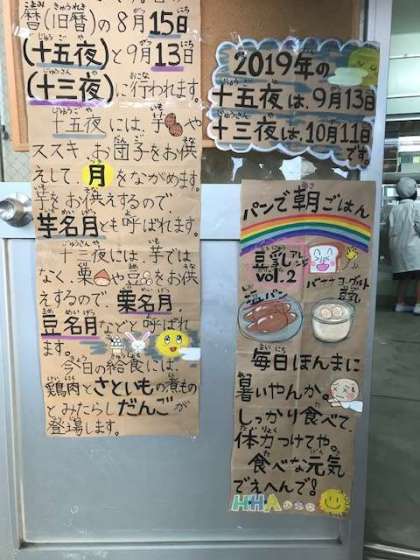 暦(旧暦)の8月15日
(十五夜)と9月13日
(十三夜)に行われます。
十五夜には、芋や
ススキ、お団子をお供
えして、月をながめます。
芋をお供えするので
芋名月とも呼ばれます。
十三夜には、芋では
なく、栗や豆をお供
えするので、栗名月
豆名月などと呼ばれ
ます。
今日の給食には、
鶏肉とさといもの煮もの
とみたらしだんごが
登場します。
2019年の
十五夜は、9月13日
十三夜は、10月11日
です。
パンで朝ごはん
豆乳アレンジ
vol.2
塩パン
バナナヨーグルト
豆乳
毎日ほんまに
暑いやんか。
しっかり食べて
体力つけてや。
食べな元気
でえへんで!